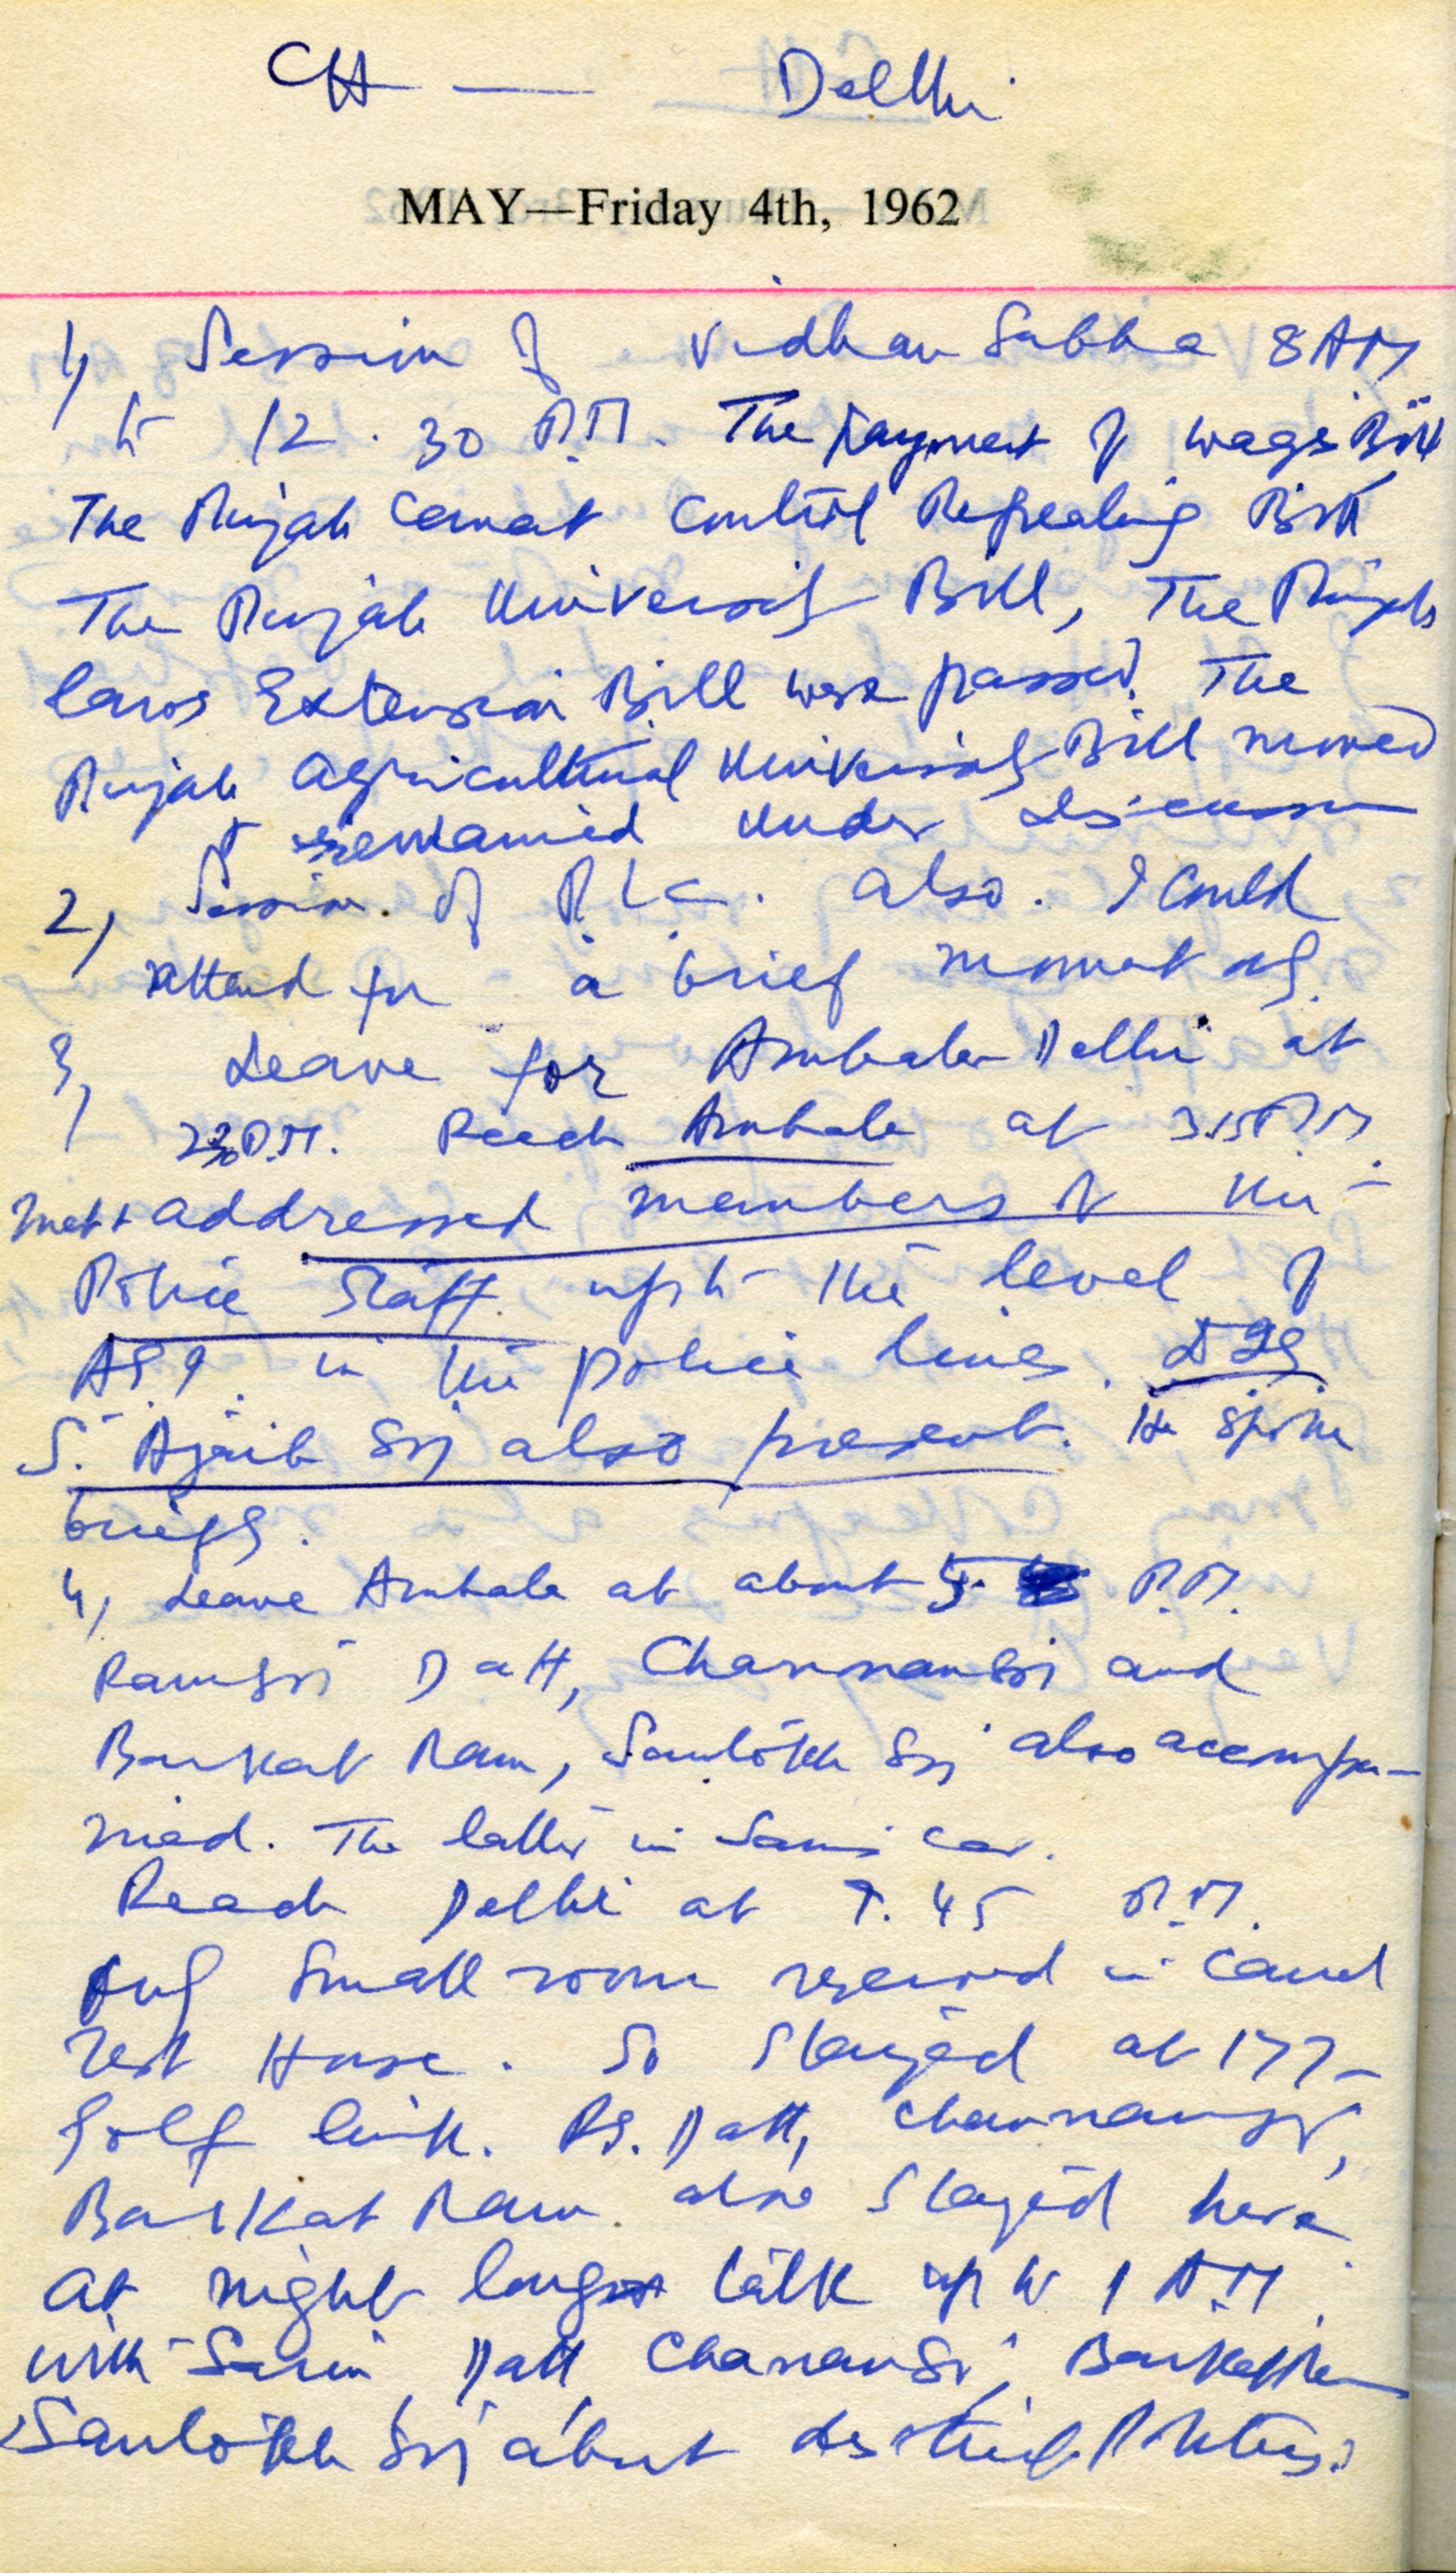 CH — Delhi
MAY—Friday 4th, 1962
1) Session of Vidhan Sabha 8 AM
to 12.30 P.M. The Payment of wages Bill
The Punjab Cement Control Repealing Bill
The Punjab University Bill, The Punjab
laws Extension Bill were passed. The
Punjab Agricultural University Bill moved
& remained under discussion
2) Session of P.L.C. also. I could
attend for a brief moment only.
3) Leave for Ambala Delhi at
2.30 P.M. Reach Ambala at 3.15 P.M.
met & addressed members of the
Police Staff upto the level of
ASI in the police lines. DIG
S. Ajaib Singh also present. He spoke
briefly.
4) Leave Ambala at about 5 P.M.
Ram Datt, Chanan and
Barkat Ram, Santokh Singh also accompa-
nied. The latter in car.
Reach Delhi at 7.45 P.M.
Only Small room reserved in Canal
rest House. So Stayed at 177-
Golf link. R.S. Datt, Chanan
Barkat Ram also Stayed here.
At night long talk up to 1 A.M.
with Sarin, Datt Chanan Barkat Ram
Santokh Singh about district Politics.